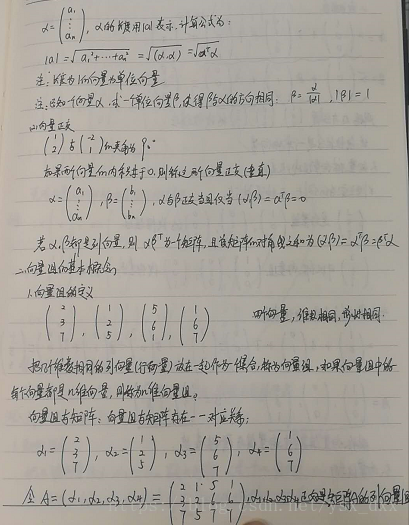 α = (a₁ ⋮ aₙ), α的长度用|α|表示, 计算公式为:
|α| = √(a₁²+⋯+aₙ²) = √(α,α) = √(αᵀα)
注: 长度为1的向量为单位向量
注: 已知一个向量α, 求一单位向量β, 使得β与α的方向相同: β = α/|α|, |β| = 1
(2)向量正交
(1 2) 与 (-2 1) 的夹角为 90°
如果两个向量的内积等于0, 则称这两个向量正交(垂直)
α = (a₁ ⋮ aₙ), β = (b₁ ⋮ bₙ), α与β正交当且仅当 (α,β) = αᵀβ = 0
若α,β都是列向量, 则 αβᵀ为一个矩阵, 且该矩阵的对角线之和为 (α,β) = αᵀβ = βᵀα
二、向量组的基本概念
1.向量组的定义
(2 3 7), (1 2 5), (5 6 1), (1 6 7) 四个向量, 维数相同, 形状相同
把几个维数相同的列向量(行向量)放在一起作为一个集合, 称为向量组, 如果向量组中的
每个向量都是n维向量, 则称为n维向量组。
向量组与矩阵: 向量组与矩阵存在一一对应关系:
α₁ = (2 3 7), α₂ = (1 2 5), α₃ = (5 6 7), α₄ = (1 6 7)
令 A = (α₁, α₂, α₃, α₄) = (2 1 5 1 3 2 6 6 7 5 7 7), α₁,α₂,α₃,α₄正是矩阵A的列向量组